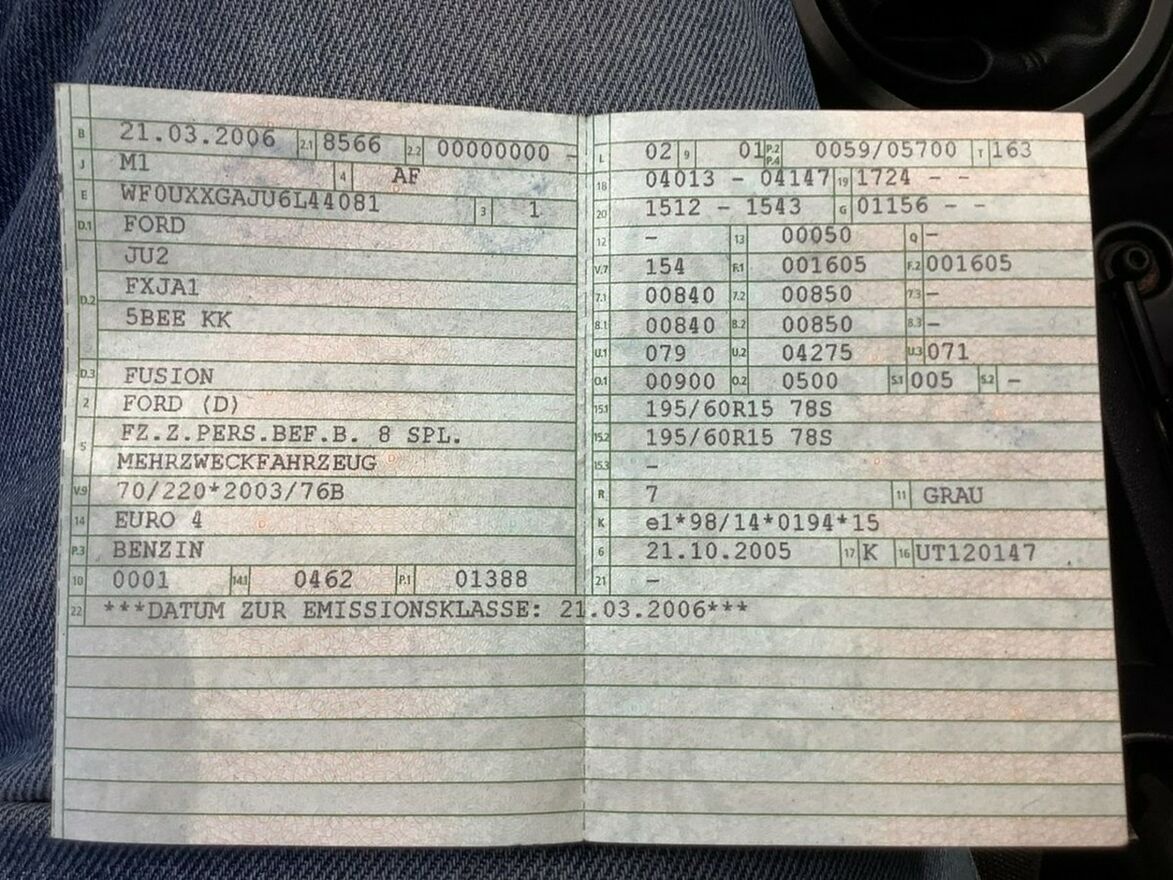 B 21.03.2006 2.1 8566 2.2 00000000 -
J M1 4 AF
E WF0UXXGAJU6L44081 3 1
D.1 FORD
JU2
D.2 FXJA1
5BEE KK
D.3 FUSION
2 FORD (D)
5 FZ.Z.PERS.BEF.B. 8 SPL.
MEHRZWECKFAHRZEUG
V.9 70/220*2003/76B
14 EURO 4
P.3 BENZIN
10 0001 14.1 0462 P.1 01388
22 ***DATUM ZUR EMISSIONSKLASSE: 21.03.2006***
L 02 9 01 P.2 P.4 0059/05700 T 163
18 04013 - 04147 19 1724 - -
20 1512 - 1543 G 01156 - -
12 - 13 00050 Q -
V.7 154 F.1 001605 F.2 001605
7.1 00840 7.2 00850 7.3 -
8.1 00840 8.2 00850 8.3 -
U.1 079 U.2 04275 U.3 071
O.1 00900 O.2 0500 S.1 005 S.2 -
15.1 195/60R15 78S
15.2 195/60R15 78S
15.3 -
R 7 11 GRAU
K e1*98/14*0194*15
6 21.10.2005 17 K 16 UT120147
21 -